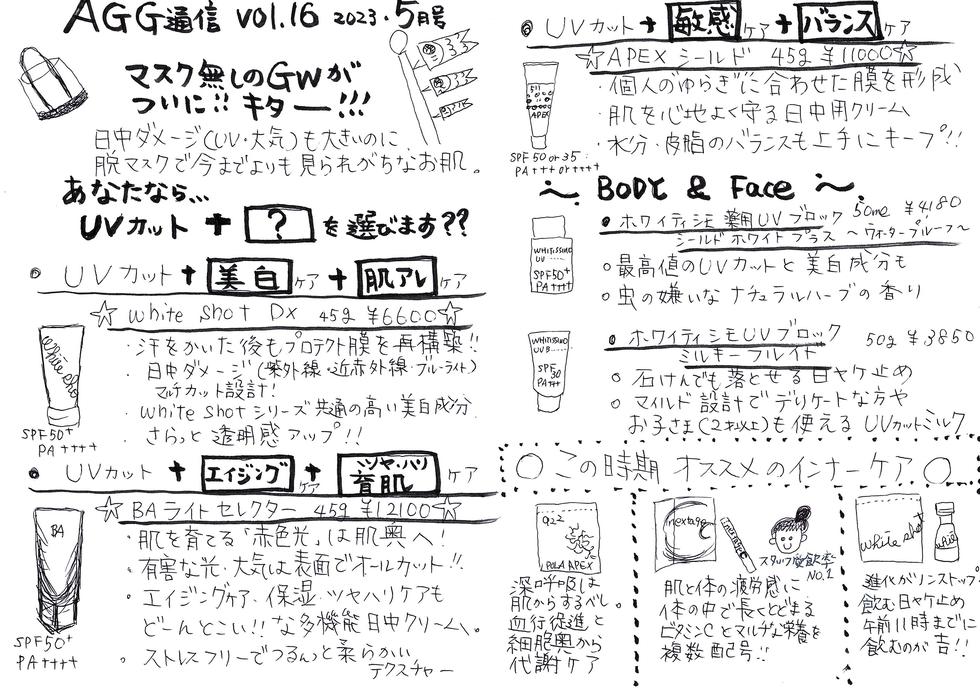 AGG通信 vol.16 2023.5月号
マスク無しのGWが
ついに!! キター!!!
日中ダメージ(UV・大気)も大きいのに
脱マスクで今までよりも見られがちなお肌。
あなたなら…
UVカット + ? を選びます??
◎ UVカット + 美白ケア + 肌アレケア
☆ White Shot DX 45g ¥6600 ☆
White Shot
SPF50+
PA++++
・汗をかいた後もプロテクト膜を再構築!!
・日中ダメージ(紫外線・近赤外線・ブルーライト)
マルチカット設計!
・White Shotシリーズ共通の高い美白成分
・さらっと透明感アップ!!
◎ UVカット + エイジングケア + ツヤ・ハリ育肌ケア
☆ BAライト セレクター 45g ¥12100 ☆
BA
SPF50+
PA++++
・肌を育てる「赤色光」は肌奥へ!
・有害な光・大気は表面でオールカット!!
・エイジングケア、保湿、ツヤハリケアも
どーんとこい!!な多機能日中クリーム。
。ストレスフリーでつるんっと柔らかい
テクスチャー
◎ UVカット + 敏感ケア + バランスケア
☆ APEX シールド 45g ¥11000 ☆
APEX
SPF50 or 35
PA+++ or ++++
・個人のゆらぎに合わせた膜を形成
・肌を心地よく守る日中用クリーム
・水分・皮脂のバランスも上手にキープ!!
〜 BODY & Face 〜
● ホワイティシモ 薬用UVブロック 50ml ¥4180
シールド ホワイト プラス 〜ウォータープルーフ〜
WHITISSIMO
UV
SPF50+
PA++++
○最高値のUVカットと美白成分も
○虫の嫌いなナチュラルハーブの香り
◎ ホワイティシモUVブロック 50g ¥3850
ミルキーフルイド
WHITISSIMO
UV B
SPF
30
PA+++
○ 石けんでも落とせる日ヤケ止め
○ マイルド設計でデリケートな方や
お子さま(2才以上)も使えるUVカットミルク
○ この時期 オススメのインナーケア ○
POLA APEX
深呼吸は
肌からするべし。
血行促進と
細胞奥から
代謝ケア
inextage
スタッフ愛飲率
NO.1
肌と体の疲労感に
体の中で長くとどまる
ビタミンCとマルチな栄養を
複数配合!!
White Shot
進化がノンストップ
飲む日ヤケ止め
午前11時までに
飲むのが吉!!